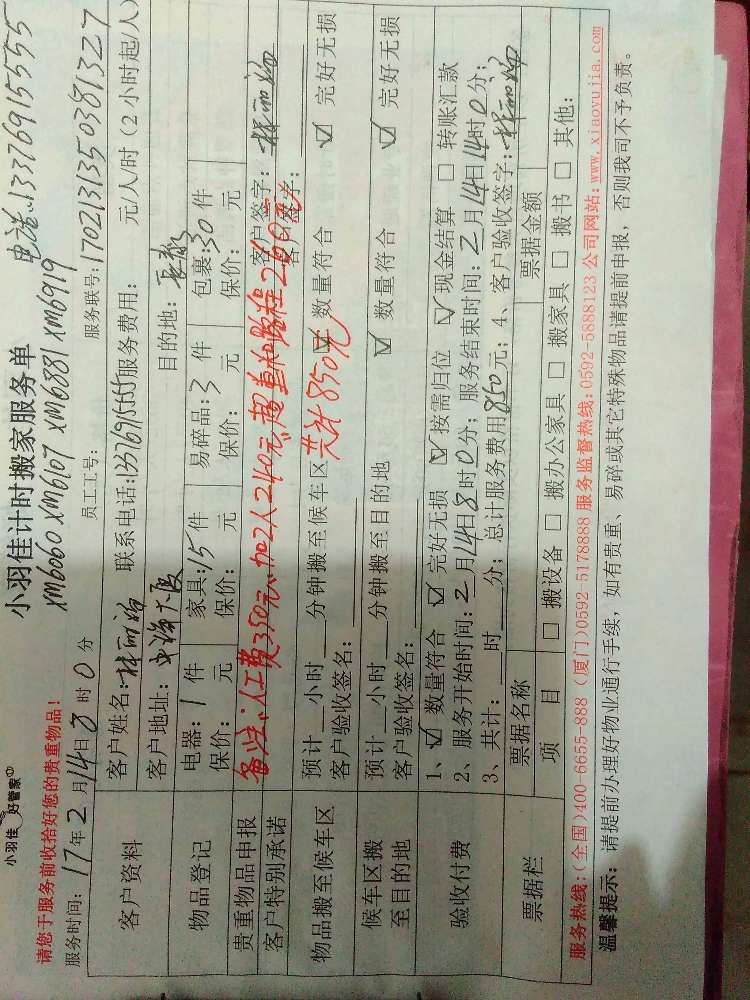 小羽佳 好管家
小羽佳计时搬家服务单
电话:13376915555
xm6060 xm6107 xm6881 xm6919
请您于服务前收拾好您的贵重物品!
员工工号:
服务联号:1702131350381327
服务时间:17年2月14日8时0分
元/人/时(2小时起/人)
客户资料
客户姓名:林丽
联系电话:13376915555服务费用:
客户地址:
大厦
目的地:
物品登记
电器:1件
家具:15件
易碎品:3件
包裹:30件
保价: 元
保价: 元
保价: 元
保价: 元
贵重物品申报
备注:人工费350元、加2人240元、超重和路程260元
客户签字:
客户特别承诺
客户签字:
共计850元
物品搬至候车区
预计 小时 分钟搬至候车区
☑ 数量符合
☑ 完好无损
客户验收签名:
候车区搬
至目的地
预计 小时 分钟搬至目的地
☑ 数量符合
☑ 完好无损
客户验收签名:
验收付费
1、☑ 数量符合 ☑ 完好无损 ☑ 按需归位 ☑ 现金结算 □ 转账汇款
2、服务开始时间:2月14日8时0分;服务结束时间:2月14日14时0分;
3、共计: 时 分;总计服务费用850元;4、客户验收签字:
票据栏
票据名称
票据金额
项 目
□ 搬设备 □ 搬办公家具 □ 搬家具 □ 搬书 □ 其他:
服务热线:(全国)400-6655-888 (厦门)0592-5178888 服务监督热线:0592-5888123 公司网站:www.xiaoyujia.com
温馨提示: 请提前办理好物业通行手续,如有贵重、易碎或其它特殊物品请提前申报,否则我司不予负责。